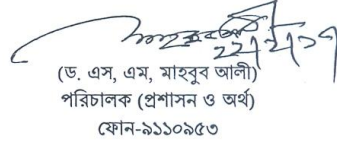 (ড. এস, এম, মাহবুব আলী)
পরিচালক (প্রশাসন ও অর্থ)
ফোন-৯১১০৯৫৩